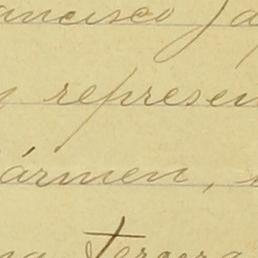 ancisco Ja
represen
ármen,
Tercera